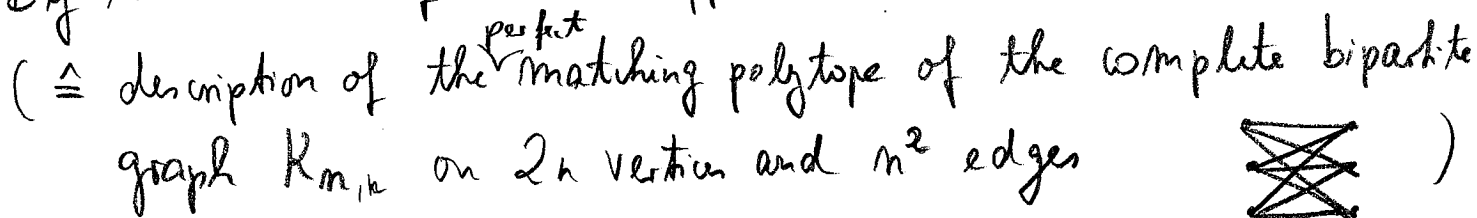 (≙ description of the perfect matching polytope of the complete bipartite
graph K_{n,n} on 2n vertices and n² edges )